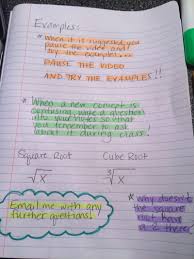 Examples:
* When it is suggested you
pause the video and
try the examples...
PAUSE THE VIDEO
AND TRY THE EXAMPLES!!
* When a new concept is
confusing, write a question
into your notes so that
you remember to ask
about it during class!
Square Root
Cube Root
√x
∛x
Email me with any
further questions!
* Why doesn't
the square
root have
a 2 there?